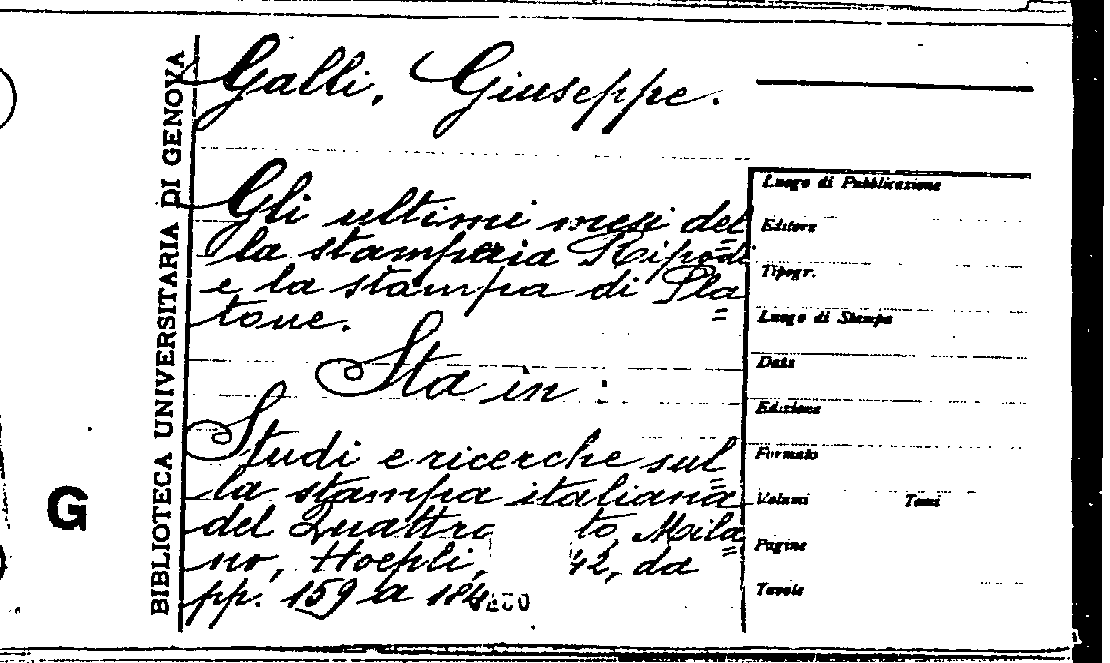 BIBLIOTECA UNIVERSITARIA DI GENOVA
G
Galli, Giuseppe.
Gli ultimi mesi del=
la stamperia Ripoli
e la stampa di Pla=
tone.
Sta in:
Studi e ricerche sul=
la stampa italiana
del Quattro to, Mila=
no, Hoepli, 42, da
pp. 159 a 184
Luogo di Pubblicazione
Editore
Tipogr.
Luogo di Stampa
Data
Edizione
Formato
Volumi Tomi
Pagine
Tavole